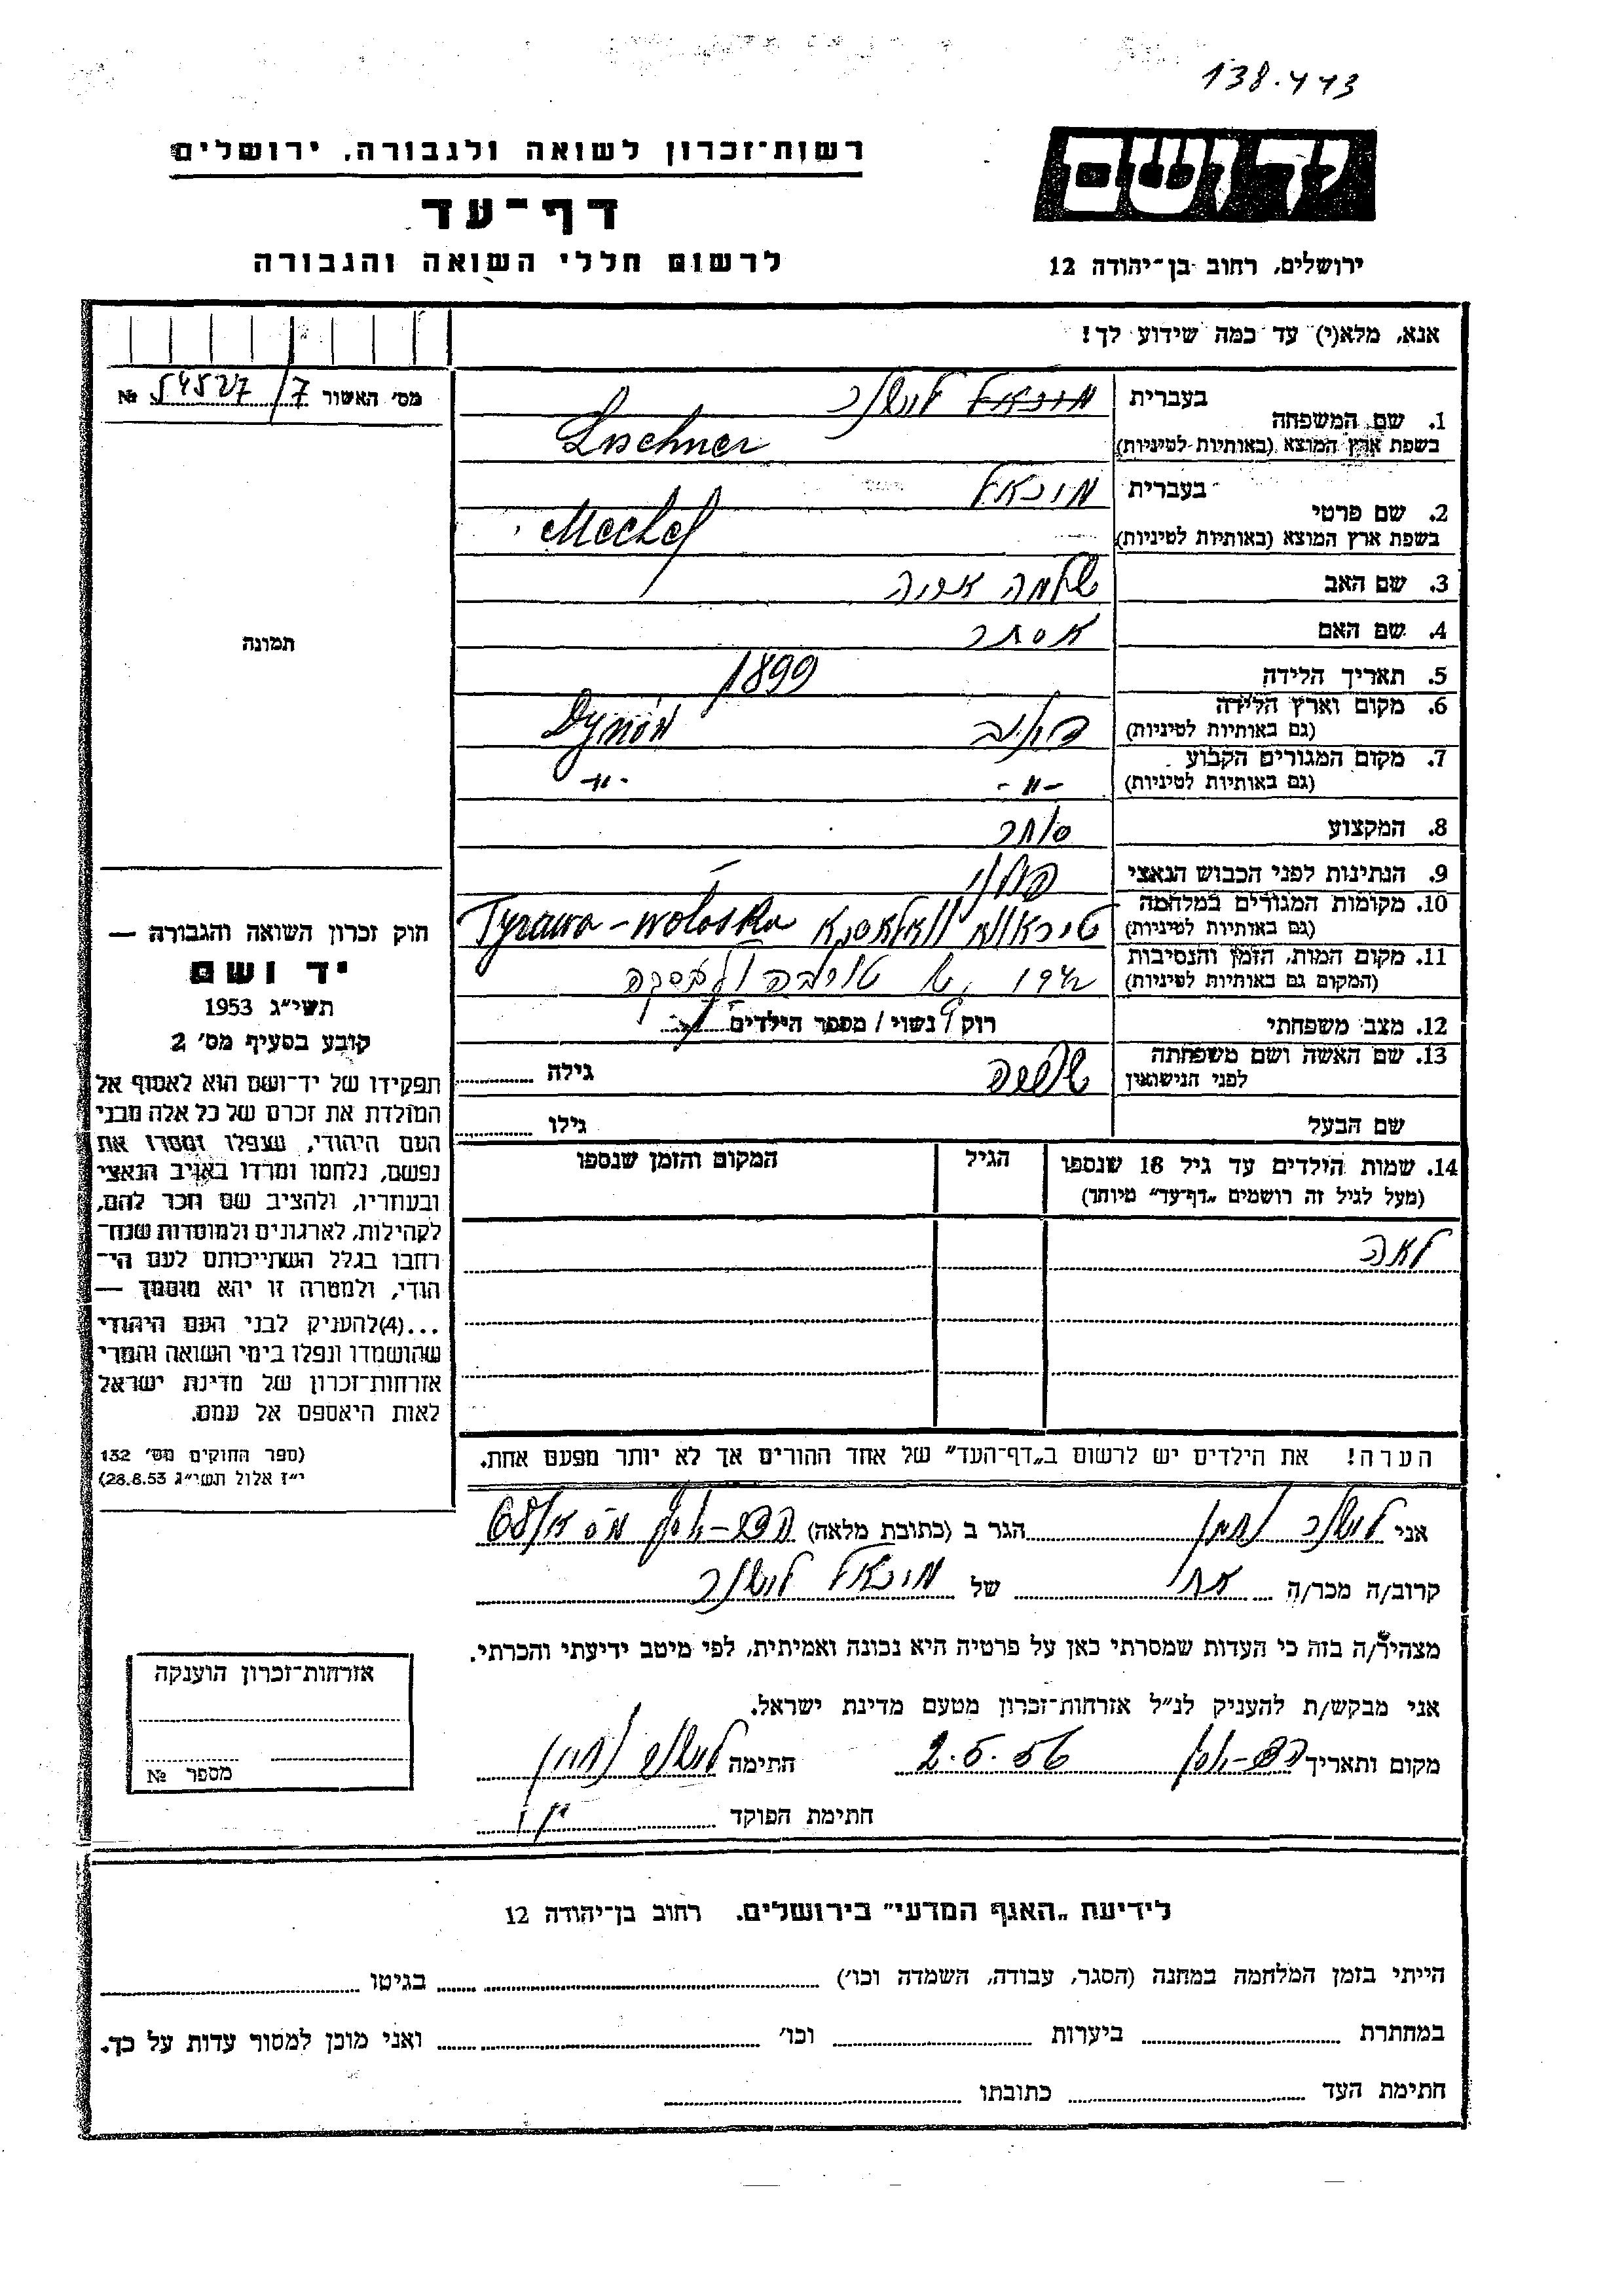 138.443
יד ושם
רשות־זכרון לשואה ולגבורה, ירושלים
דף־עד
לרשום חללי השואה והגבורה
ירושלים, רחוב בן־יהודה 12
אנא, מלא(י) עד כמה שידוע לך!
מס׳ האשור 54527/7 №
1. שם המשפחה
בעברית מיכאל לושנר
בשפת ארץ המוצא (באותיות לטיניות) Luschner
2. שם פרטי
בעברית מיכאל
בשפת ארץ המוצא (באותיות לטיניות) Mechel
3. שם האב שלמה אריה
4. שם האם אסתר
תמונה
5. תאריך הלידה 1899
6. מקום וארץ הלידה
(גם באותיות לטיניות) דינוב Dynów
7. מקום המגורים הקבוע
(גם באותיות לטיניות) -״- -״-
8. המקצוע סוחר
9. הנתינות לפני הכבוש הנאצי פולני
10. מקומות המגורים במלחמה
(גם באותיות לטיניות) Tyrawa-wołoska
11. מקום המות, הזמן והנסיבות
(המקום גם באותיות לטיניות) 1942
12. מצב משפחתי רוק / נשוי / מספר הילדים
13. שם האשה ושם משפחתה
לפני הנישואין גילה
שם הבעל גילו
14. שמות הילדים עד גיל 18 שנספו הגיל המקום והזמן שנספו
(מעל לגיל זה רושמים „דף־עד״ מיוחד)
לאה
הערה! את הילדים יש לרשום ב„דף־העד״ של אחד ההורים אך לא יותר מפעם אחת.
חוק זכרון השואה והגבורה —
יד ושם
תשי״ג 1953
קובע בסעיף מס׳ 2
תפקידו של יד־ושם הוא לאסוף אל
המולדת את זכרם של כל אלה מבני
העם היהודי, שנפלו ומסרו את
נפשם, נלחמו ומרדו באויב הנאצי
ובעוזריו, ולהציב שם וזכר להם,
לקהילות, לארגונים ולמוסדות שנח־
רבו בגלל השתייכותם לעם הי־
הודי, ולמטרה זו יהא מוסמך —
...(4)להעניק לבני העם היהודי
שהושמדו ונפלו בימי השואה והמרי
אזרחות־זכרון של מדינת ישראל
לאות היאספם אל עמם.
(ספר החוקים מס׳ 132
י״ז אלול תשי״ג 28.8.53)
אני לושנר נחמן הגר ב (כתובת מלאה)
קרוב/ה מכר/ה אח של מיכאל לושנר
מצהיר/ה בזה כי העדות שמסרתי כאן על פרטיה היא נכונה ואמיתית, לפי מיטב ידיעתי והכרתי.
אני מבקש/ת להעניק לנ״ל אזרחות־זכרון מטעם מדינת ישראל.
מקום ותאריך 2.5.56 חתימה לושנר נחמן
חתימת הפוקד
אזרחות־זכרון הוענקה
מספר №
לידיעת „האגף המדעי״ בירושלים. רחוב בן־יהודה 12
הייתי בזמן המלחמה במחנה (הסגר, עבודה, השמדה וכו׳) בגיטו
במחתרת ביערות וכו׳ ואני מוכן למסור עדות על כך.
חתימת העד כתובתו